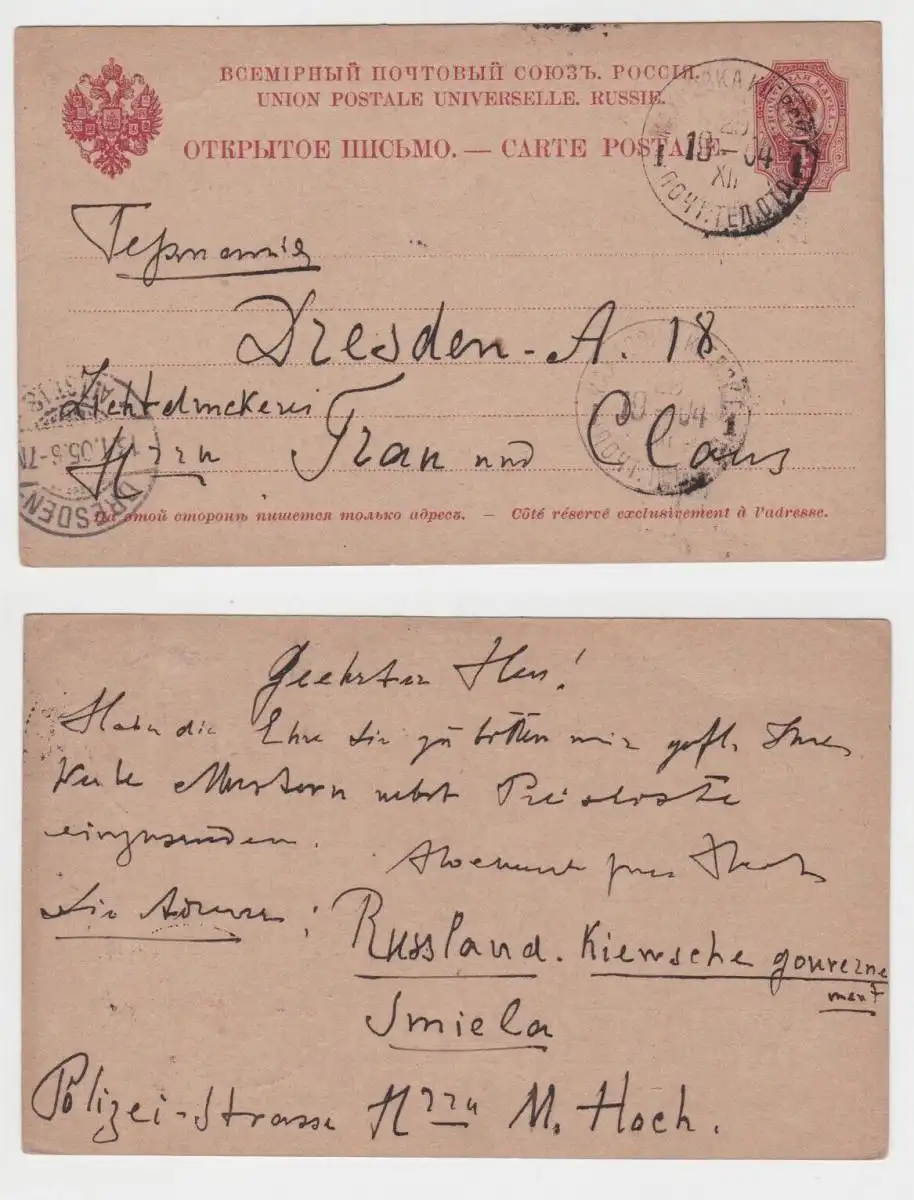 ВСЕМІРНЫЙ ПОЧТОВЫЙ СОЮЗЪ. РОССІЯ.
UNION POSTALE UNIVERSELLE. RUSSIE.
ОТКРЫТОЕ ПИСЬМО. — CARTE POSTALE.
19 — 04
XII
ПОЧТ. ТЕЛ. ОТД.
Германія
Dresden - A. 18
Lichtdruckerei
Hrrn Tran und Claus
DRESDEN
На этой сторонѣ пишется только адресъ. — Côté réservé exclusivement à l'adresse.
Geehrter Herr!
Habe die Ehre Sie zu bitten mir gefl. Ihre
Werte Mustern nebst Preisliste
einzusenden.
Die Adresse:
Russland. Kiewsche gouverne
ment
Smiela
Polizei-Strasse Hrrn M. Hoch.